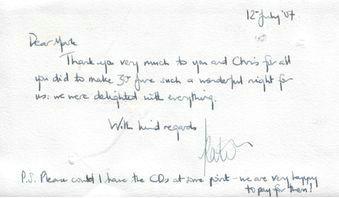 12th July '07
Dear Mark
Thank you very much to you and Chris for all
you did to make 30th June such a wonderful night for
us: we were delighted with everything.
With kind regards
Kate
P.S. Please could I have the CDs at some point - we are very happy
to pay for them!